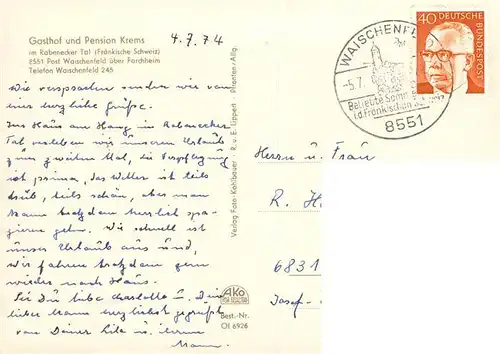 Gasthof und Pension Krems
im Rabenecker Tal (Fränkische Schweiz)
8551 Post Waischenfeld über Forchheim
Telefon Waischenfeld 245
4.7.74
Wie versprochen senden wir von
hier herzliche Grüße.
Im Haus am Hang im Rabenecker
Tal verleben wir unseren Urlaub
zum zweiten Mal, die Verpflegung
ist prima, das Wetter ist teils
trüb, teils schön, aber man
kann trotzdem herrlich spa-
zieren gehn. Wie schnell ist
unser Urlaub aus und,
wir fahren trotzdem gern
wieder nach Haus.
Sei Du liebe Charlotte u. Dein
lieber Mann herzlichst gegrüßt
von Deiner u. ihrem
Mann.
Verlag Foto-Kohlbauer · R. u. E. Lippert · Pfronten/Allg.
AKO
Best.-Nr.
OI 6926
WAISCHENFELD
-5.7.
Beliebte Somm
i.d. Fränkischen
8551
40 DEUTSCHE
BUNDESPOST
Herrn u. Frau
R. H
6831
Josef-